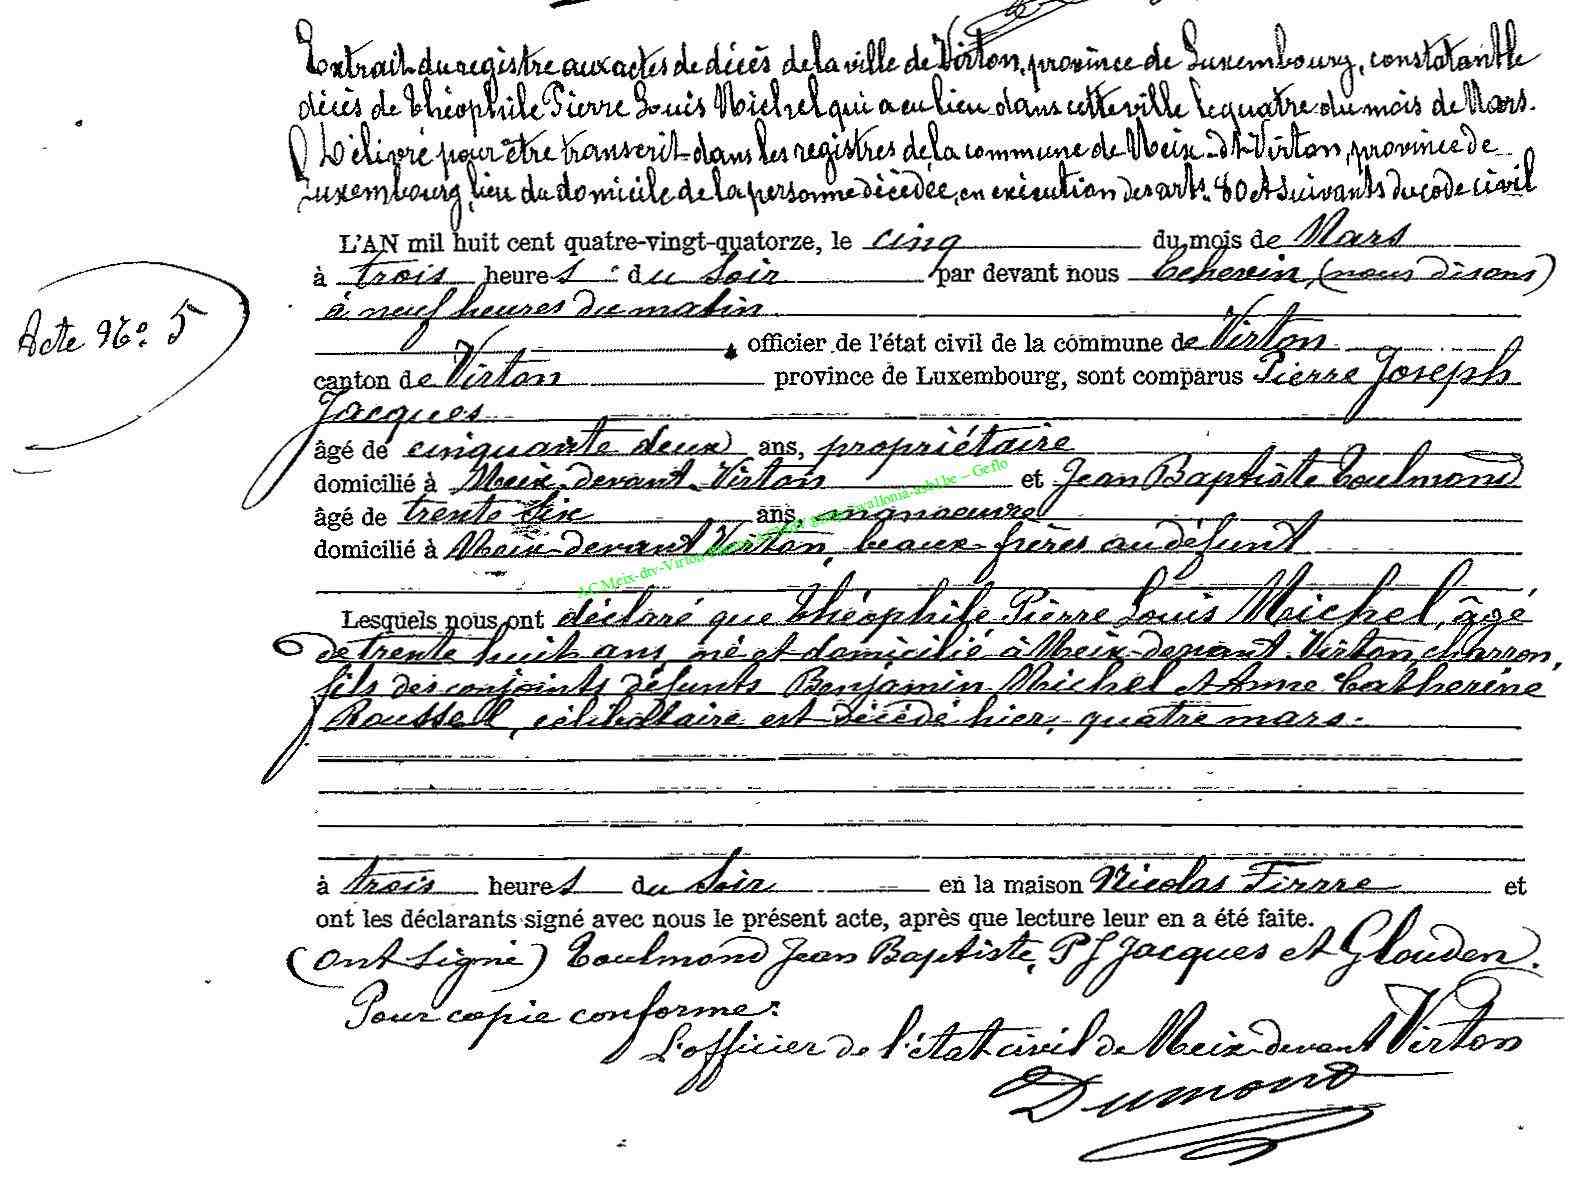 Extrait du registre aux actes de décès de la ville de Virton, province de Luxembourg, constatant le
décès de Théophile Pierre Louis Michel qui a eu lieu dans cette ville le quatre du mois de Mars.
Délivré pour être transcrit dans les registres de la commune de Meix-dt-Virton, province de
Luxembourg, lieu du domicile de la personne décédée, en exécution des arts. 80 et suivants du code civil
L'AN mil huit cent quatre-vingt-quatorze, le cinq du mois de Mars
à trois heures du soir par devant nous Echevin, (nous disons)
à neuf heures du matin
Acte No. 5
officier de l'état civil de la commune de Virton
canton de Virton province de Luxembourg, sont comparus Pierre Joseph
Jacques
âgé de cinquante deux ans, propriétaire
domicilié à Meix-devant-Virton et Jean Baptiste Toulmond
âgé de trente six ans, manoeuvre
domicilié à Meix-devant Virton, beaux-frères au défunt
AC Meix-dtv-Virton wallonia-asbl.be – Geflo
Lesquels nous ont déclaré que Théophile Pierre Louis Michel, âgé
de trente huit ans, né et domicilié à Meix-devant-Virton, charron,
fils des conjoints défunts Benjamin Michel et Anne Catherine
Roussel, célibataire est décédé hier, quatre mars.
à trois heures du soir en la maison Nicolas Pierre et
ont les déclarants signé avec nous le présent acte, après que lecture leur en a été faite.
(ont signé) Toulmond Jean Baptiste, P J Jacques et Glouden.
Pour copie conforme:
L'officier de l'état civil de Meix-devant Virton
Dumont